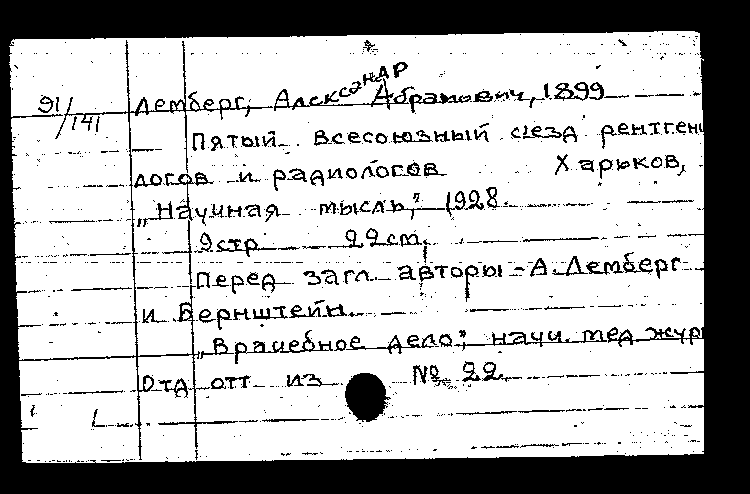 91/141 Лемберг, Александр Абрамович, 1899
Пятый Всесоюзный сьезд рентгено
логов и радиологов Харьков,
„Научная мысль", 1928.
9стр 22см.
Перед загл. авторы - А. Лемберг
и Бернштейн.
„Врачебное дело", научн. мед журн
Отд отт из № 22